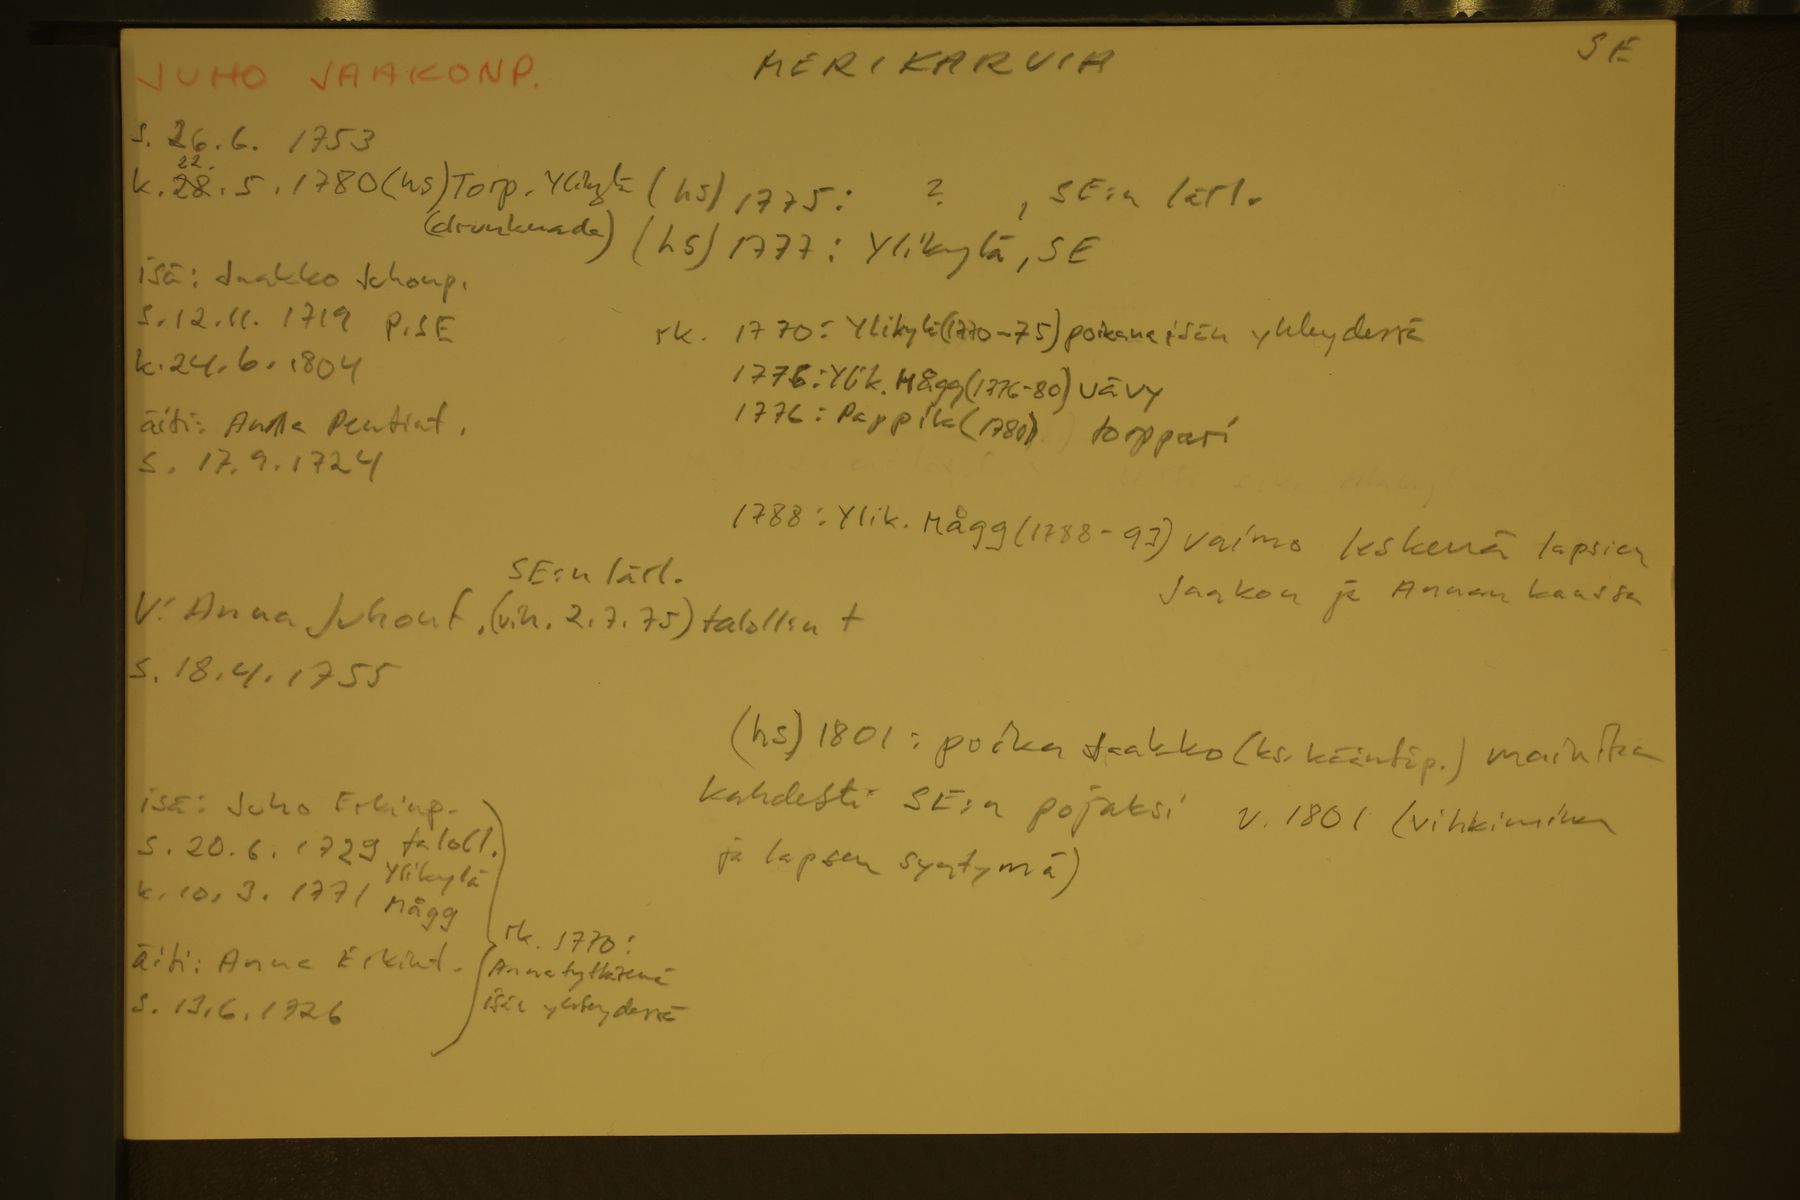 JUHO JAAKONP.
MERIKARVIA
SE
s. 26.6. 1753
22.
k. 28.5.1780 (hs) Torp. Ylikylä (hs) 1775: ? , SE:n lärl.
(drunknade) (hs) 1777: Ylikylä, SE
isä: Jaakko Juhonp.
s. 12.11. 1719 P.SE
k. 24.6.1804
äiti: Anna Pentint.
s. 17.9.1724
rk. 1770: Ylikylä (1770-75) poikana isän yhteydessä
1776: Ylik. Mågg (1776-80) vävy
1776: Pappila (1780) torppari
1788: Ylik. Mågg (1788-93) vaimo leskenä lapsien
Jaakon ja Annan kanssa
SE:n lärl.
V: Anna Juhont. (vih. 2.7.75) talollisen t
s. 18.4.1755
(hs) 1801: poika Jaakko (ks. kääntöp.) mainitaan
kahdesti SE:n pojaksi v. 1801 (vihkiminen
ja lapsen syntymä)
isä: Juho Erkinp.
s. 20.6.1729 taloll.
Ylikylä
k. 10.3. 1771 Mågg
äiti: Anna Erkint.
s. 13.6.1726
rk. 1770:
Anna tyttärenä
isän yhteydessä